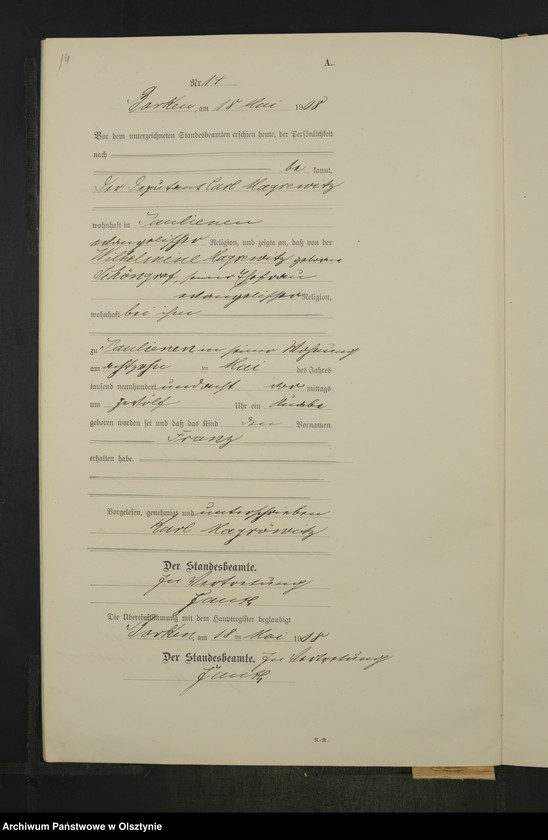 14
A.
Nr. 14
Borken, am 18 Mai 1908
Vor dem unterzeichneten Standesbeamten erschien heute, der Persönlichkeit
nach
be kannt,
Der Deputant Carl Mayrewitz
wohnhaft in Paulienen
evangelischer Religion, und zeigte an, daß von der
Wilhelmine Mayrewitz geborene
Schöngraf, seiner Ehefrau
evangelischer Religion,
wohnhaft bei ihm
zu Paulienen in seiner Wohnung
am achtzehn ten Mai des Jahres
tausend neunhundert und acht vor mittags
um zwölf Uhr ein Knabe
geboren worden sei und daß das Kind den Vornamen
Franz
erhalten habe.
Vorgelesen, genehmigt und unterschrieben
Karl Mayröwitz
Der Standesbeamte.
In Vertretung
Die Übereinstimmung mit dem Hauptregister beglaubigt
Borken, am 18 ten Mai 1908
Der Standesbeamte. In Vertretung
R.-M.
Archiwum Państwowe w Olsztynie